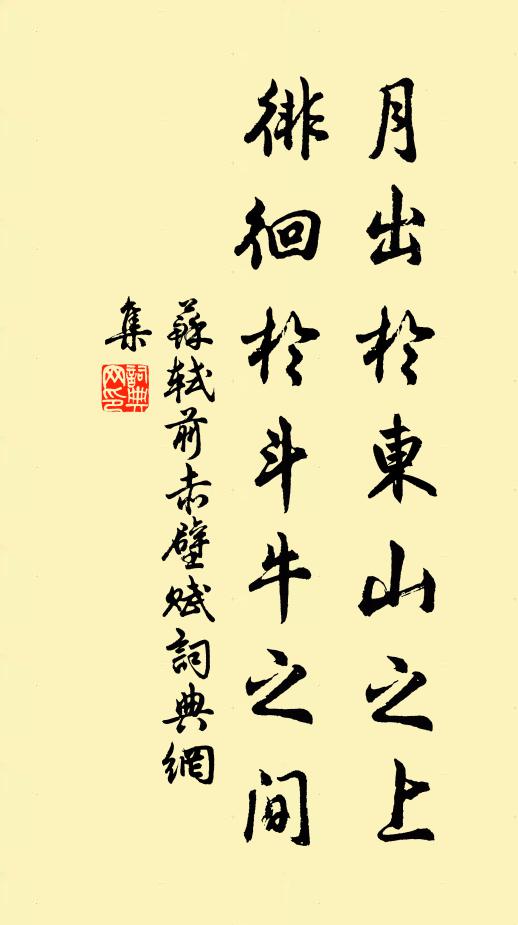 月出於東山之上
徘徊於斗牛之间
蘇軾前赤壁賦詞典網
集
詞典
网印